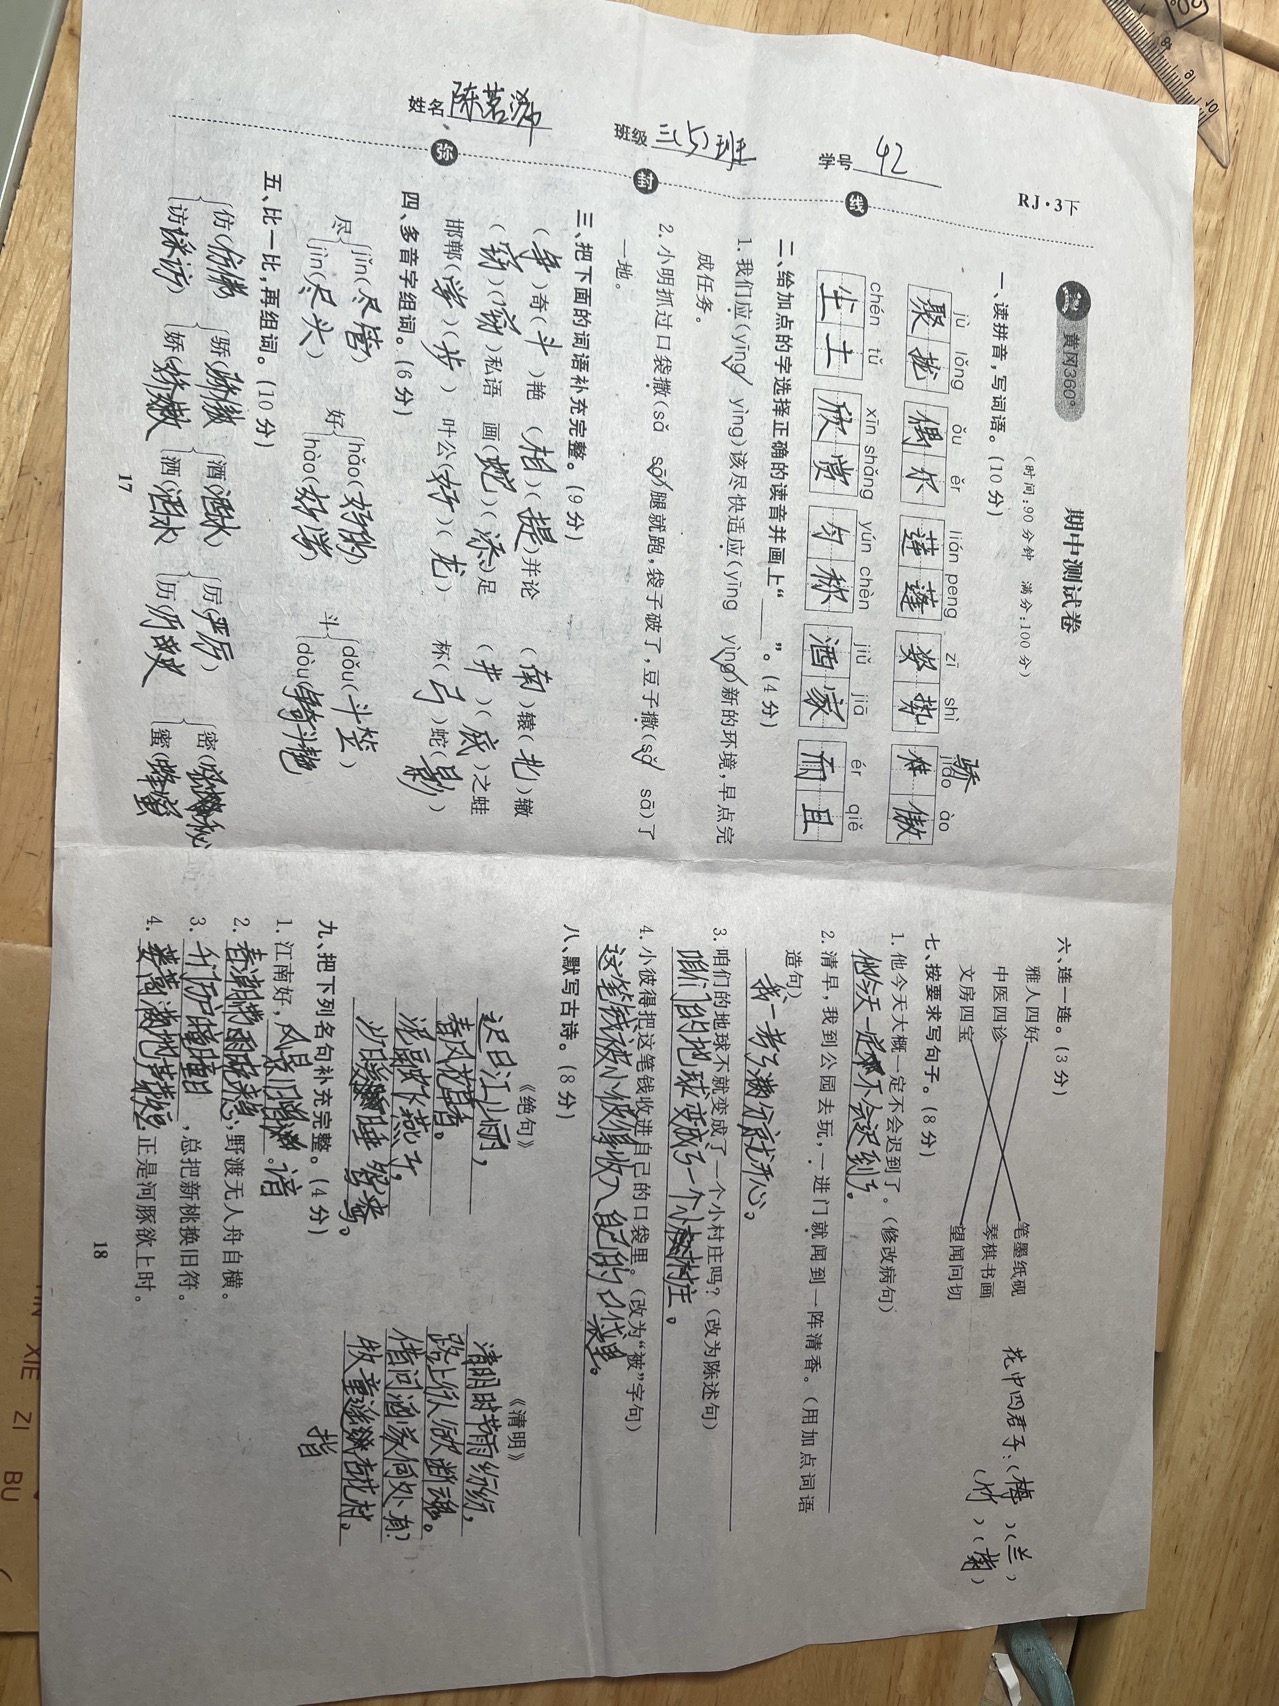 姓名 陈茗
班级 三(5)班
学号 42
弥 封 线
RJ·3下
黄冈360°
期中测试卷
(时间:90分钟 满分:100分)
一、读拼音,写词语。(10分)
jù lǒng ǒu ěr lián peng zī shì jiāo ào
聚拢 偶尔 莲蓬 姿势 傲
骄
chén tǔ xīn shǎng yún chèn jiǔ jiā ér qiě
尘土 欣赏 匀称 酒家 而且
二、给加点的字选择正确的读音并画上“____”。(4分)
1. 我们应(yīng√ yìng)该尽快适应(yīng yìng√)新的环境,早点完
成任务。
2. 小明抓过口袋撒(sǎ sā√)腿就跑,袋子破了,豆子撒(sǎ√ sā)了
一地。
三、把下面的词语补充完整。(9分)
(争)奇(斗)艳 (相)(提)并论 (南)辕(北)辙
(窃)(窃)私语 画(蛇)(添)足 (井)(底)之蛙
邯郸(学)(步) 叶公(好)(龙) 杯(弓)蛇(影)
四、多音字组词。(6分)
尽 jǐn(尽管) 好 hǎo(好的) 斗 dǒu(斗笠)
jìn(尽头) hào(好学) dòu(争奇斗艳)
五、比一比,再组词。(10分)
仿(仿佛) 骄(骄傲) 酒(酒水) 厉(严厉) 密(秘)
访(采访) 娇(娇嫩) 洒(洒水) 历(历史) 蜜(蜂蜜)
17
六、连一连。(3分)
雅人四好 笔墨纸砚
中医四诊 琴棋书画
文房四宝 望闻问切
花中四君子:(梅)(兰)
(竹)(菊)
七、按要求写句子。(8分)
1. 他今天大概一定不会迟到了。(修改病句)
他今天一定不会迟到了。
2. 清早,我到公园去玩,一进门就闻到一阵清香。(用加点词语
造句)
我一考了满分就开心。
3. 咱们的地球不就变成了一个小村庄吗?(改为陈述句)
咱们的地球变成了一个小村庄。
4. 小彼得把这笔钱收进自己的口袋里。(改为“被”字句)
这笔钱被小彼得收入自己的口袋里。
八、默写古诗。(8分)
《绝句》
迟日江山丽,
春风花草香。
泥融飞燕子,
沙暖睡鸳鸯。
《清明》
清明时节雨纷纷,
路上行人欲断魂。
借问酒家何处有?
牧童遥指杏花村。
指
九、把下列名句补充完整。(4分)
1. 江南好,风景旧曾谙。
2. 春潮带雨晚来急,野渡无人舟自横。
3. 千门万户曈曈日,总把新桃换旧符。
4. 蒌蒿满地芦芽短,正是河豚欲上时。
18
XIE ZI BU